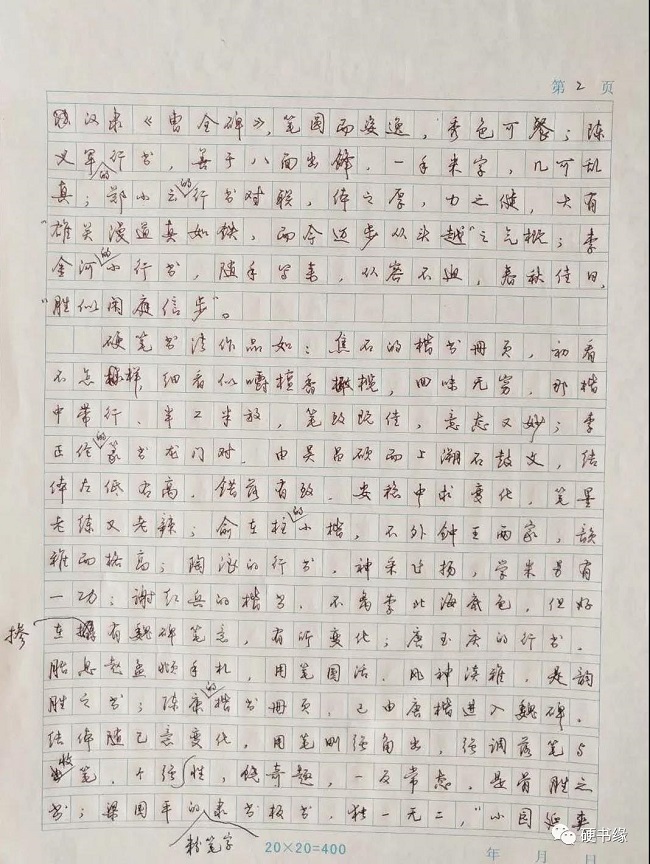 第 2 页
汉隶《曹全碑》，笔圆而姿逸，秀色可餐；陈
义军的行书，善于八面出锋，一手米字，几可乱
真；郑小云的行书对联，体之厚，力之健，大有
“雄关漫道真如铁，而今迈步从头越”之气概；李
金河的小行书，随手写来，从容不迫，春秋佳日，
“胜似闲庭信步”。
硬笔书法作品如：焦石的楷书册页，初看
不怎样，细看似嚼檀香橄榄，回味无穷，那楷
中带行、半工半放，笔致既佳，意态又妙；李
正伦的篆书龙门对，由吴昌硕而上溯石鼓文，结
体左低右高，错落有致，安稳中求变化，笔墨
老练又老辣；俞在柱的小楷，不外钟王两家，韵
雅而格高；陶浪的行书，神采飞扬，学米另有
一功；谢红兵的楷书，不离李北海底色，但好
在掺有魏碑笔意，有所变化；唐玉庆的行书，
脱息赵孟頫手札，用笔圆活，风神淡雅，是韵
胜之书；陈康的楷书册页，已由唐楷进入魏碑，
结体随己意变化，用笔则强角出，强调落笔与
收笔，个性强，饶奇趣，一反常态，是骨胜之
书；梁国平的粉笔字隶书板书，独一无二，“小园延爽
20×20=400
年 月 日
硬书缘